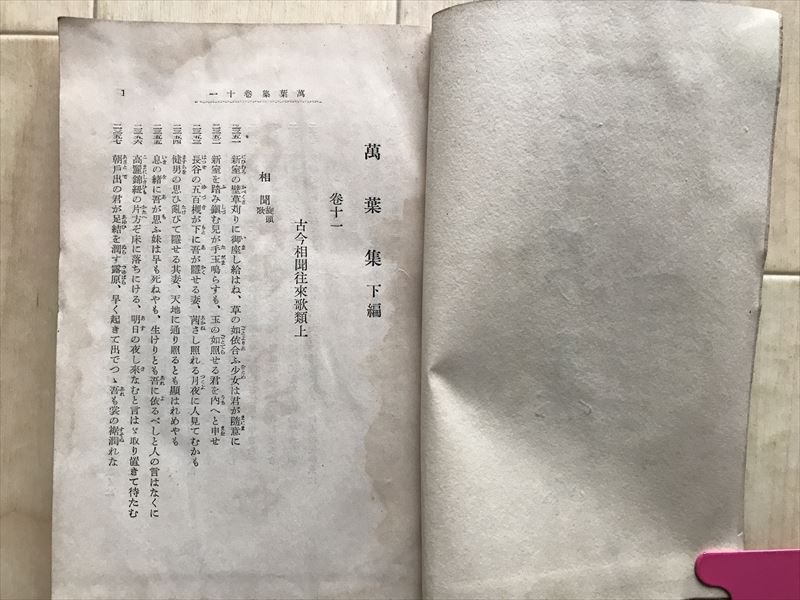 萬葉集 下編
卷十一
古今相聞往來歌類上
相聞 旋頭歌
二三五一 新室の壁草刈りに御座し給はね、草の如依合ふ少女は君が隨意に
二三五二 新室を踏み鎭む兒が手玉鳴らすも、玉の如照せる君を內へと申せ
二三五三 長谷の五百槻が下に吾が隱せる妻、茜さし照れる月夜に人見てむかも
二三五四 健男の思ひ亂びて隱せる其妻、天地に通り照るとも顯はれめやも
二三五五 息の緒に吾が思ふ妹は早も死ねやも、生けりとも吾に依るべしと人の言はなくに
二三五六 高麗錦紐の片方ぞ床に落ちにける、明日の夜し來なむと言はゞ取り置きて待たむ
二三五七 朝戶出の君が足結を潤す露原、早く起きて出でつゝ吾も裳の裾潤れな
萬葉集卷十一
1